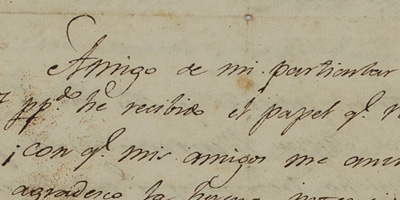 Amigo de mi particular
pp.do he recibido el papel q.e
con q.e mis amigos me
agradesco la buena